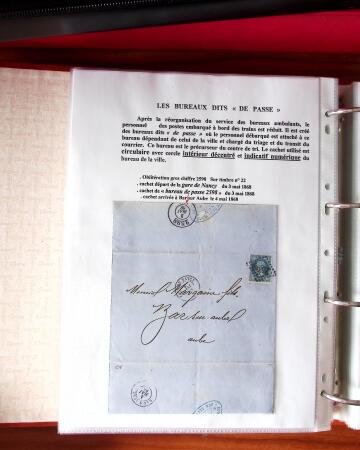 LES BUREAUX DITS « DE PASSE »
Après la réorganisation du service des bureaux ambulants, le
personnel des postes embarqué à bord des trains est réduit. Il est créé
des bureaux dits « de passe » où le personnel débarqué est attaché à ce
bureau dépendant de celui de la ville et chargé du triage et du transit du
courrier. Ce bureau est le précurseur du centre de tri. Le cachet utilisé est
circulaire avec cercle intérieur décentré et indicatif numérique du
bureau de la ville.
. Oblitération gros chiffre 2598 Sur timbre n° 22
. cachet départ de la gare de Nancy du 3 mai 1868
. cachet de « bureau de passe 2598 » du 3 mai 1868
. cachet arrivée à Bar sur Aube le 4 mai 1868
Monsieur
fils
Bar sur aube
aube